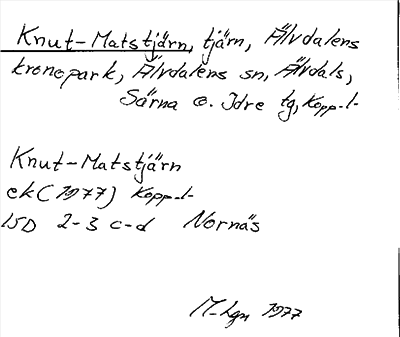 Knut-Matstjärn, tjärn, Älvdalens
kronopark, Älvdalens sn, Älvdals,
Särna o. Idre tg, Kopp. l.
Knut-Matstjärn
ek (1977) Kopp. l.
15D 2-3 c-d Nornäs
M-Lgn 1977